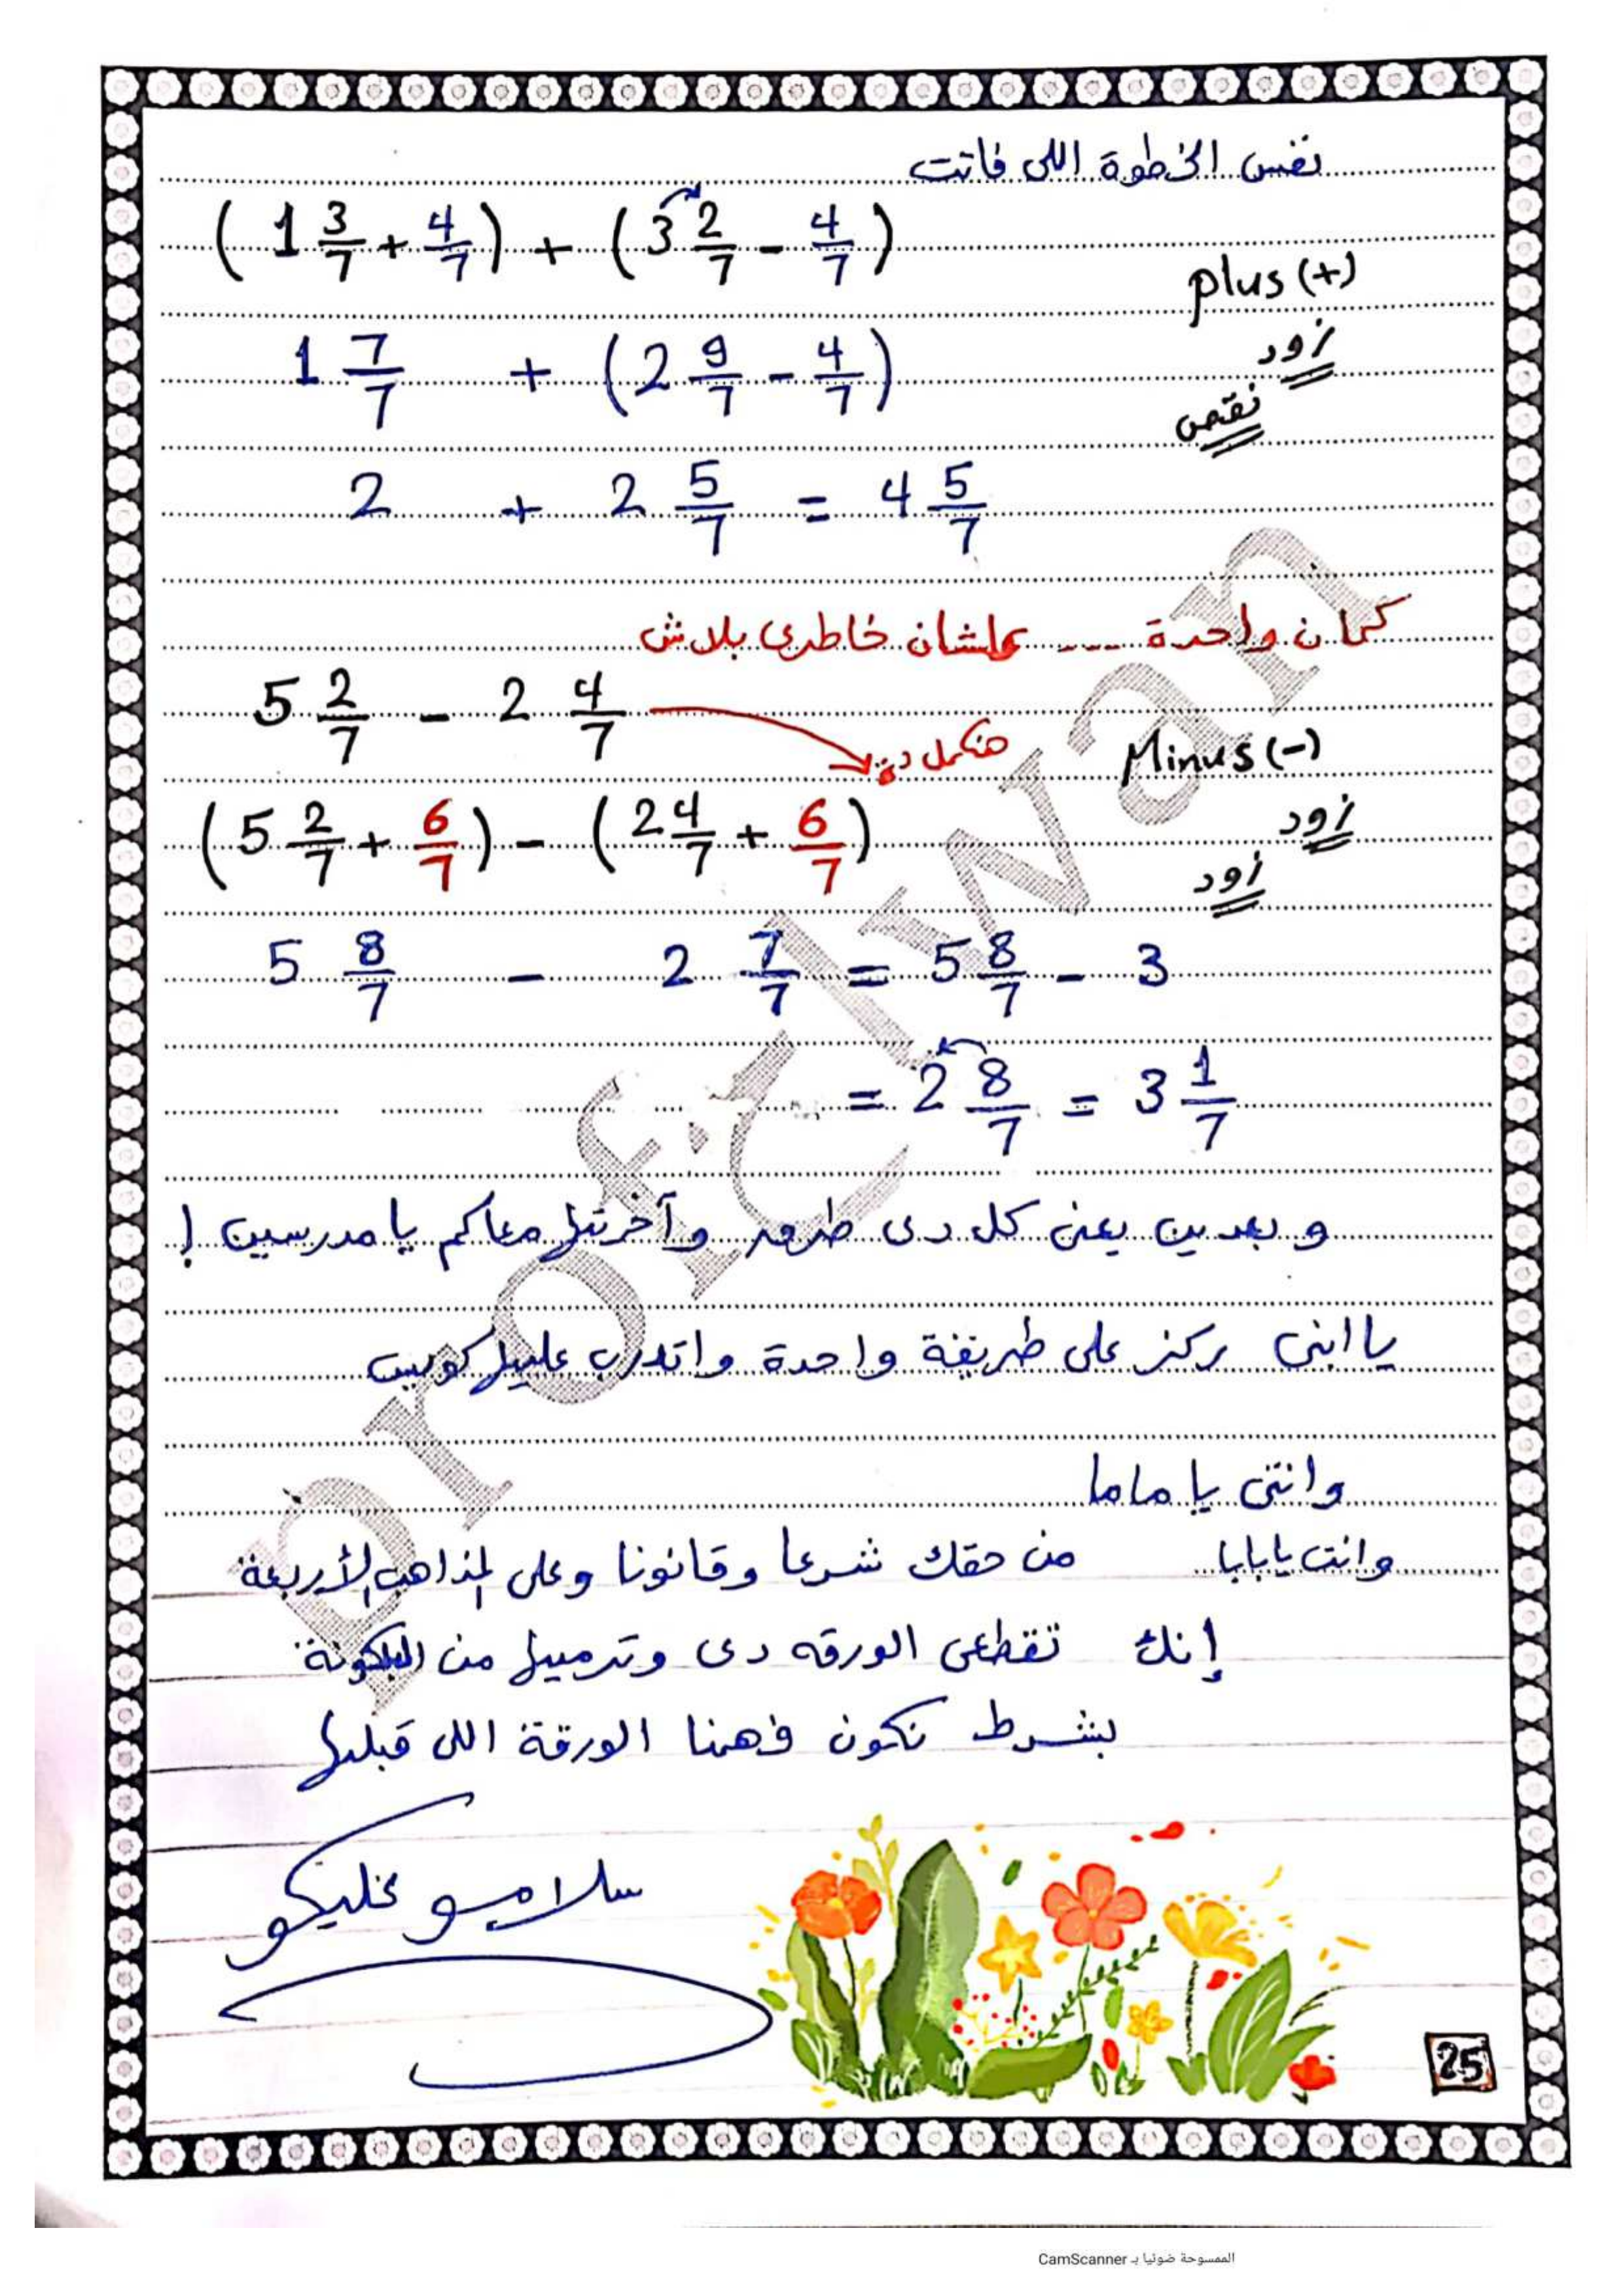 نفس الخطوة اللى فاتت
( 1 3/7 + 4/7 ) + ( 3 2/7 - 4/7 )
plus (+)
1 7/7 + ( 2 9/7 - 4/7 )
زود
نقص
2 + 2 5/7 = 4 5/7
كمان واحدة ---- علشان خاطرى بلاش
5 2/7 - 2 4/7
هنكمل دى
Minus (-)
( 5 2/7 + 6/7 ) - ( 2 4/7 + 6/7 )
زود
زود
5 8/7 - 2 7/7 = 5 8/7 - 3
= 2 8/7 = 3 1/7
و بعدين يعنى كل دى طرق وآخرتها معاكم يا مدرسين !
يا ابنى ركز على طريقة واحدة واتدرب عليها كويس
وانتى يا ماما
وانت يا بابا من حقك شرعا وقانونا وعلى المذاهب الأربعة
إنك تقطعى الورقه دى وترميها من البلكونة
بشرط نكون فهمنا الورقة اللى قبلها
سلامو عليكو
25
prof.Elwan
الممسوحة ضوئيا بـ CamScanner